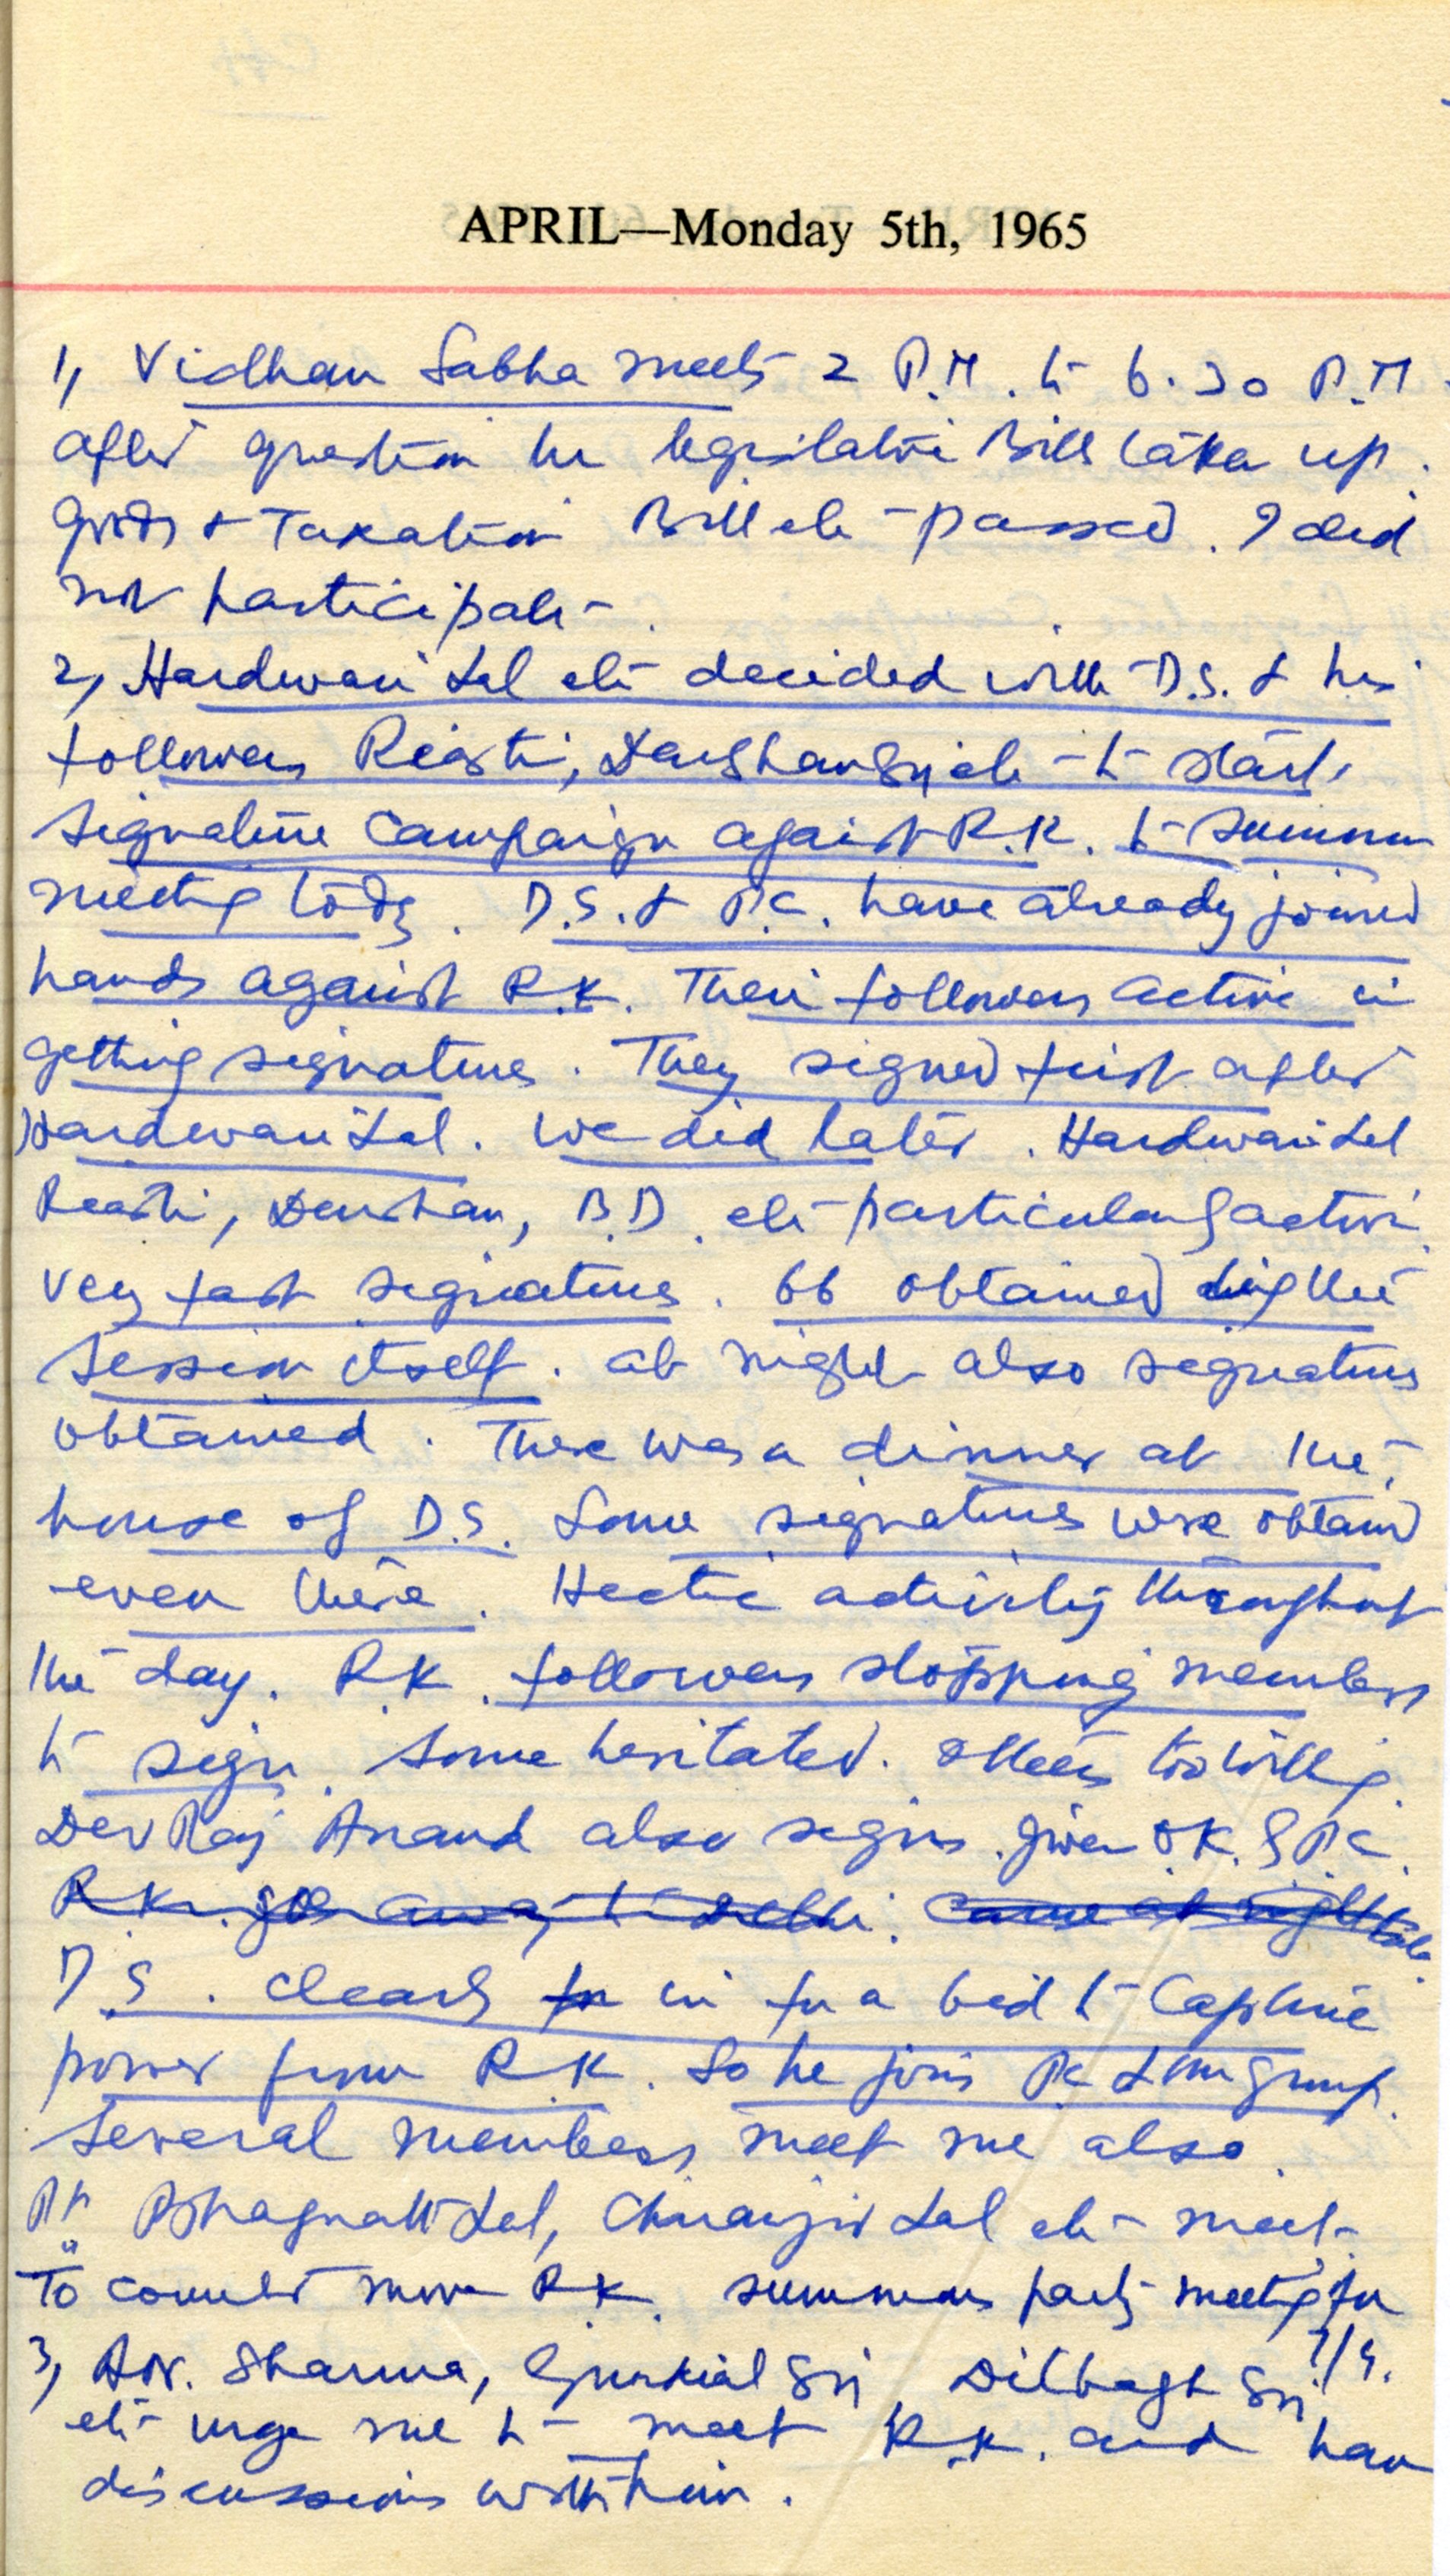 APRIL—Monday 5th, 1965
1, Vidhan Sabha meets 2 P.M. to 6.30 P.M.
after question hr legislative Bills taken up.
Goods & Taxation Bill etc passed. I did
not participate.
2, Hardwari Lal etc decided with D.S. & his
followers Riasti, Darshan Singh etc to start
signature campaign against R.K. to summon
meeting today. D.S. & P.C. have already joined
hands against R.K. Their followers active in
getting signatures. They signed first after
Hardwari Lal. We did later. Hardwari Lal
Reasti, Darshan, B.D. etc particularly active.
Very fast signatures. 66 obtained during the
session itself. at night also signatures
obtained. There was a dinner at the
house of D.S. Some signatures were obtained
even there. Hectic activity throughout
the day. R.K. followers stopping members
to sign. Some hesitated. Others too willing.
Dev Raj Anand also signs. Given O.K. by P.C.
R.K. away to Delhi. Came at night
D.S. clearly in for a bid to capture
power from R.K. So he joins PC & our group.
Several members meet me also.
Pt. Bhagwat Lal, Chiranjiv Lal etc meet.
To counter move R.K. summons party meeting for
7/4.
3, A.N. Sharma, Gurdial Singh, Dilbagh Singh
etc urge me to meet R.K. and have
discussions with him.